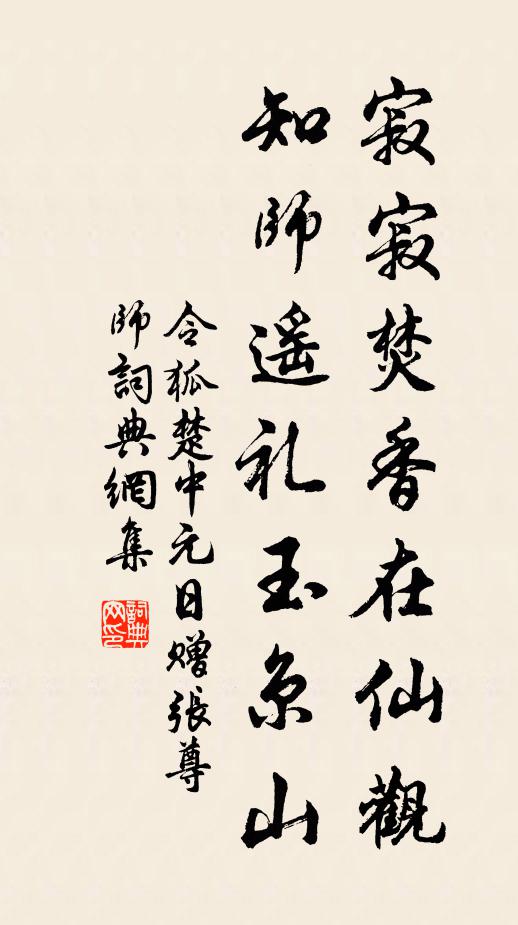 寂寂焚香在仙觀
知師遥礼玉京山
令狐楚中元日赠張尊
師詞典網集
詞典网印